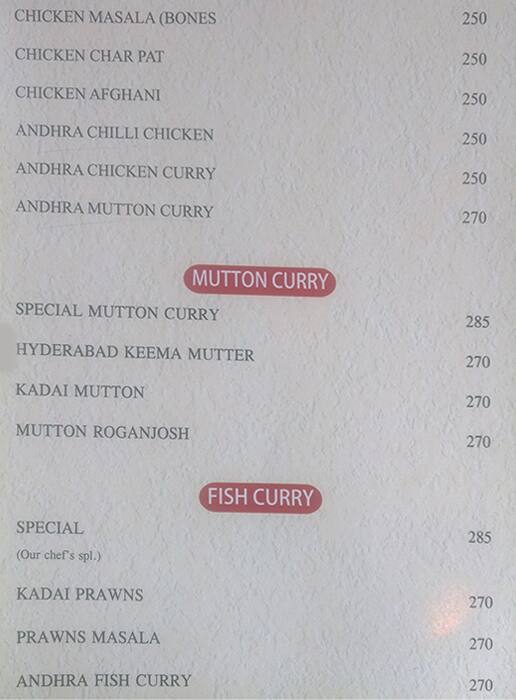 CHICKEN MASALA (BONES 250
CHICKEN CHAR PAT 250
CHICKEN AFGHANI 250
ANDHRA CHILLI CHICKEN 250
ANDHRA CHICKEN CURRY 250
ANDHRA MUTTON CURRY 270
MUTTON CURRY
SPECIAL MUTTON CURRY 285
HYDERABAD KEEMA MUTTER 270
KADAI MUTTON 270
MUTTON ROGANJOSH 270
FISH CURRY
SPECIAL 285
(Our chef's spl.)
KADAI PRAWNS 270
PRAWNS MASALA 270
ANDHRA FISH CURRY 270